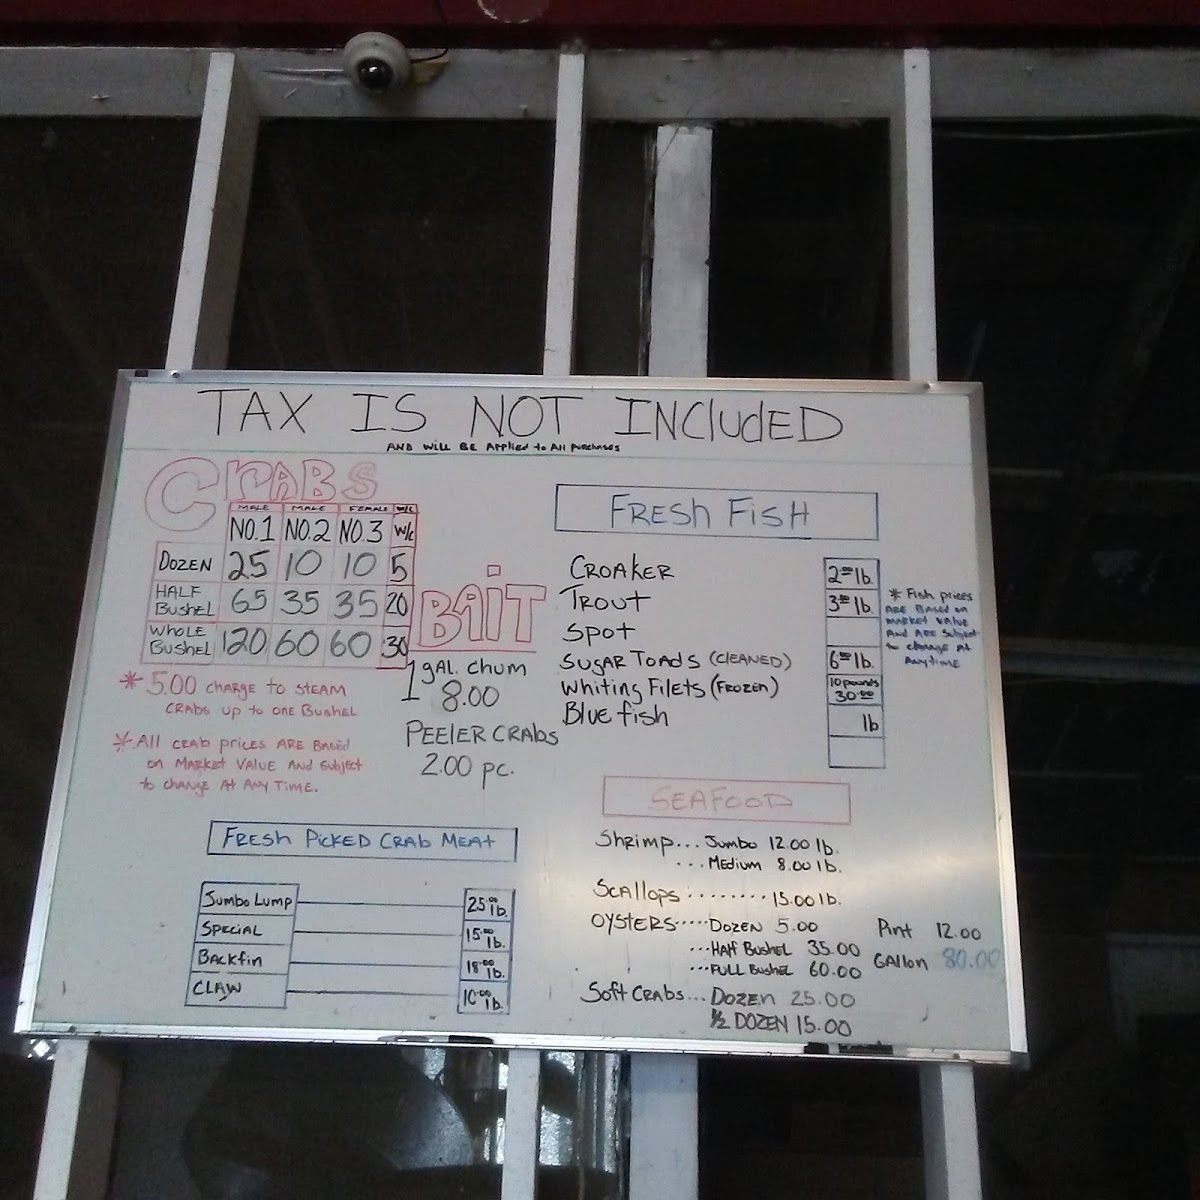 TAX IS NOT INCLUDED
AND WILL BE Applied to All purchases
CRABS
MALE MALE FEMALE
NO.1 NO.2 NO.3 w/c
DOZEN 25 10 10 5
HALF BUSHEL 65 35 35 20
WHOLE BUSHEL 120 60 60 30
* 5.00 CHARGE to STEAM
CRABS UP to ONE BUSHEL
* All CRAB prices ARE BASED
on MARKET VALUE AND SUBJECT
to CHANGE At ANY TIME.
BAiT
1 gAL. CHUM
8.00
PEELER CRAbs
2.00 pc.
FRESH FISH
CROAKER 2.00 lb.
TROUT 3.50 lb.
SPOT
SUGAR TOADS (CLEANED) 6.00 lb.
WHITING FILETS (FROZEN) 10 pounds 30.00
BLUE fish lb
* Fish prices
ARE BASED on
MARKET VALUE
AND ARE SUBJECT
to CHANGE At
Anytime
FRESH PICKED CRAB MEAT
JUMBO LUMP 25.00 lb.
SPECIAL 15.00 lb.
BACKfin 18.00 lb.
CLAW 10.00 lb.
SEAFOOD
SHRIMP... JUMBO 12.00 lb.
... MEDIUM 8.00 lb.
SCALLOPS ........ 15.00 lb.
OYSTERS..... DOZEN 5.00 Pint 12.00
... HALF BUSHEL 35.00
... FULL BUSHEL 60.00 GALLON 80.00
SOFT CRABS... DOZEN 25.00
1/2 DOZEN 15.00